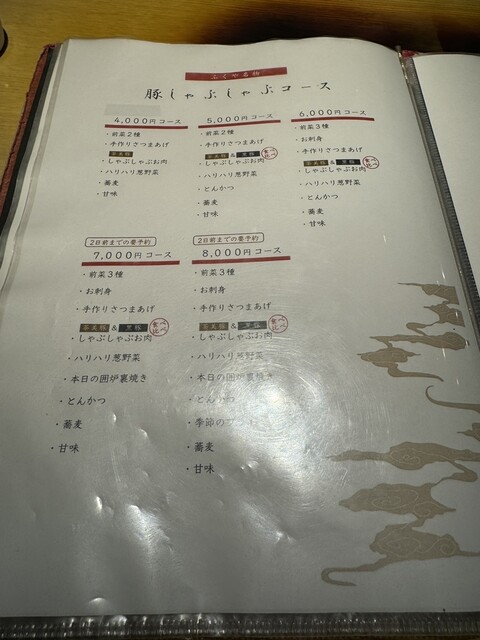 ふくや名物
豚しゃぶしゃぶコース
4,000円コース
・前菜2種
・手作りさつまあげ
茶美豚
・しゃぶしゃぶお肉
・ハリハリ葱野菜
・蕎麦
・甘味
5,000円コース
・前菜2種
・手作りさつまあげ
茶美豚 & 黒豚 食べ比べ
・しゃぶしゃぶお肉
・ハリハリ葱野菜
・とんかつ
・蕎麦
・甘味
6,000円コース
・前菜3種
・お刺身
・手作りさつまあげ
茶美豚 & 黒豚 食べ比べ
・しゃぶしゃぶお肉
・ハリハリ葱野菜
・とんかつ
・蕎麦
・甘味
2日前までの要予約
7,000円コース
・前菜3種
・お刺身
・手作りさつまあげ
茶美豚 & 黒豚 食べ比べ
・しゃぶしゃぶお肉
・ハリハリ葱野菜
・本日の囲炉裏焼き
・とんかつ
・蕎麦
・甘味
2日前までの要予約
8,000円コース
・前菜3種
・お刺身
・手作りさつまあげ
茶美豚 & 黒豚 食べ比べ
・しゃぶしゃぶお肉
・ハリハリ葱野菜
・本日の囲炉裏焼き
・とんかつ
・季節の
・蕎麦
・甘味